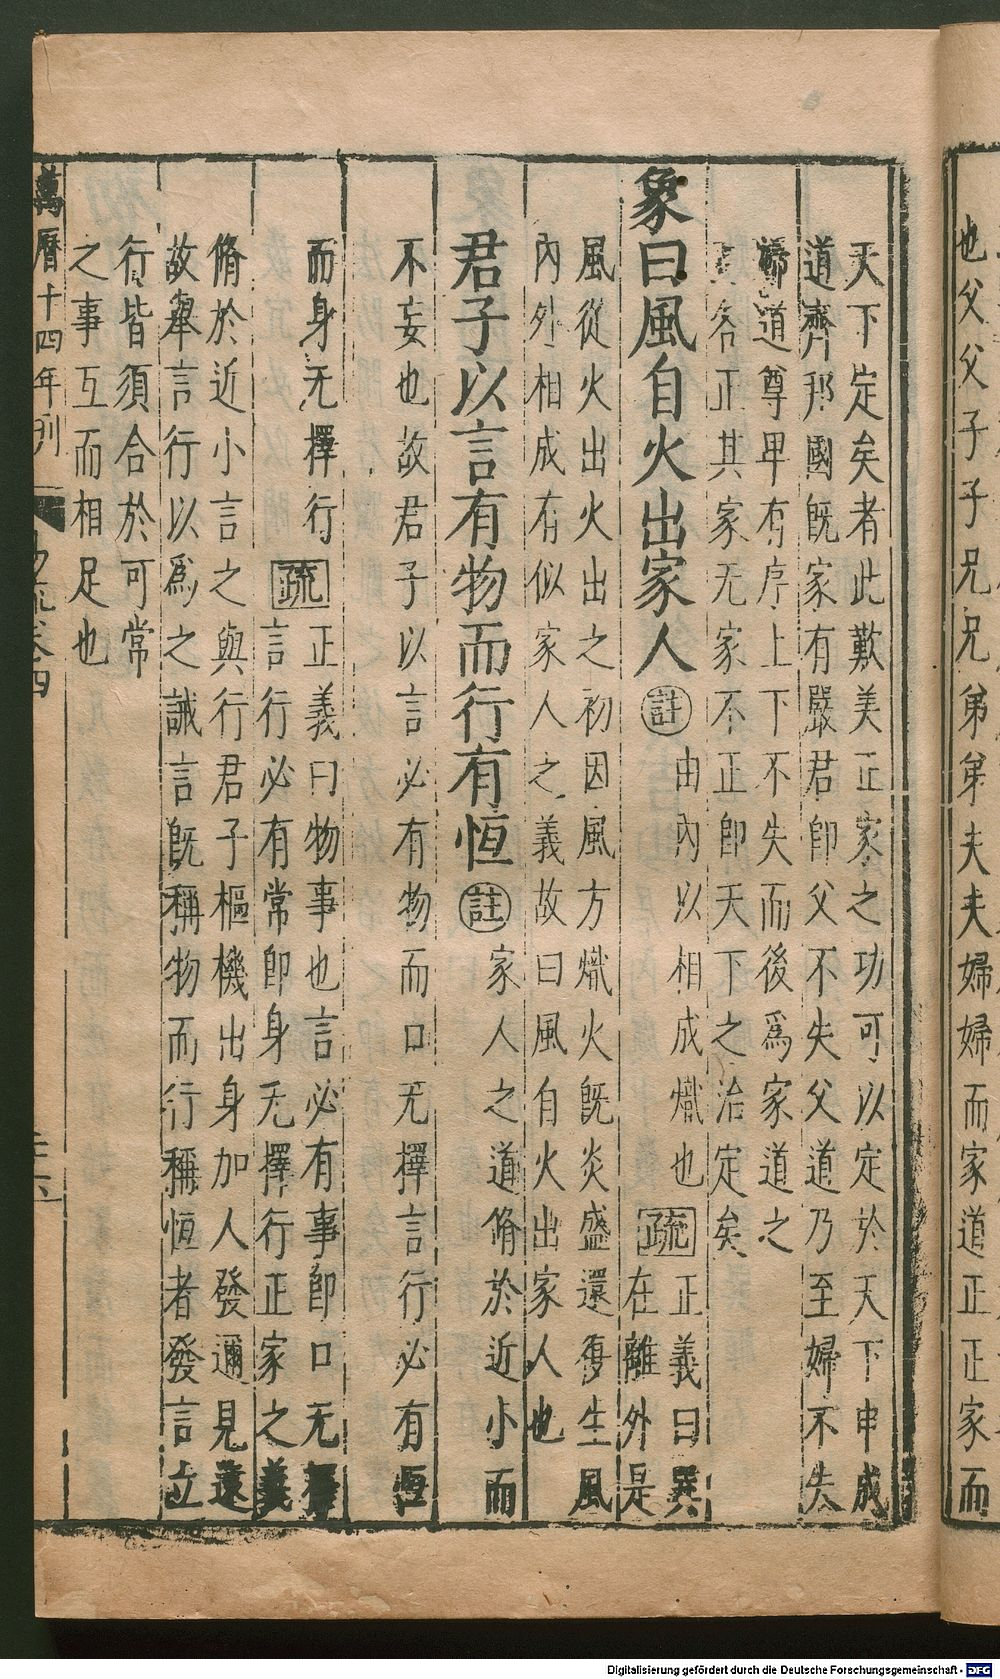 也父父子子兄兄弟弟夫夫婦婦而家道正正家而
天下定矣者此歎美正家之功可以定於天下申成
道齊邦國旣家有嚴君卽父不失父道乃至婦不失
婦道尊卑有序上下不失而後爲家道之
各正其家无家不正卽天下之治定矣
象曰風自火出家人註由內以相成熾也疏正義曰巽
在離外是
風從火出火出之初因風方熾火旣炎盛還復生風
內外相成有似家人之義故曰風自火出家人也
君子以言有物而行有恒註家人之道脩於近小而
不妄也故君子以言必有物而口无擇言行必有恒
而身无擇行疏正義曰物事也言必有事卽口无擇
言行必有常卽身无擇行正家之義
脩於近小言之與行君子樞機出身加人發邇見遠
故舉言行以爲之誡言旣稱物而行稱恒者發言立
行皆須合於可常
之事互而相足也
萬曆十四年刊 易疏卷四
Digitalisierung gefördert durch die Deutsche Forschungsgemeinschaft - DFG